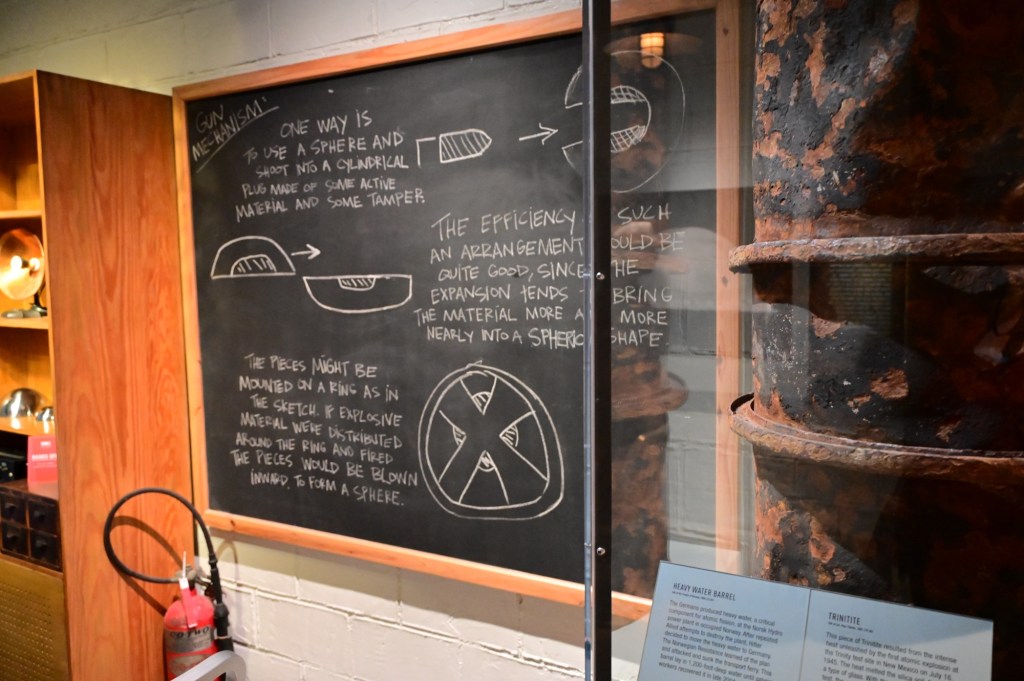 GUN
MECHANISM'
ONE WAY IS
TO USE A SPHERE AND
SHOOT INTO A CYLINDRICAL
PLUG MADE OF SOME ACTIVE
MATERIAL AND SOME TAMPER.
THE EFFICIENCY SUCH
AN ARRANGEMENT OULD BE
QUITE GOOD, SINCE THE
EXPANSION TENDS BRING
THE MATERIAL MORE A MORE
NEARLY INTO A SPHERIC SHAPE
THE PIECES MIGHT BE
MOUNTED ON A RING AS IN
THE SKETCH. IF EXPLOSIVE
MATERIAL WERE DISTRIBUTED
AROUND THE RING AND FIRED
THE PIECES WOULD BE BLOWN
INWARD, TO FORM A SPHERE.
HEAVY WATER BARREL
The Germans produced heavy water, a critical
component for atomic fission, at the Norsk Hydro
power plant in occupied Norway. After repeated
Allied attempts to destroy the plant, Hitler
decided to move the heavy water to Germany.
The Norwegian Resistance learned of the plan
and attacked and sunk the transport ferry. This
barrel lay in 1,200-foot deep water until
TRINITITE
This piece of Trinitite resulted from the intense
heat unleashed by the first atomic explosion at
the Trinity test site in New Mexico on July 16,
1945. The heat melted the silica
a type of glass.